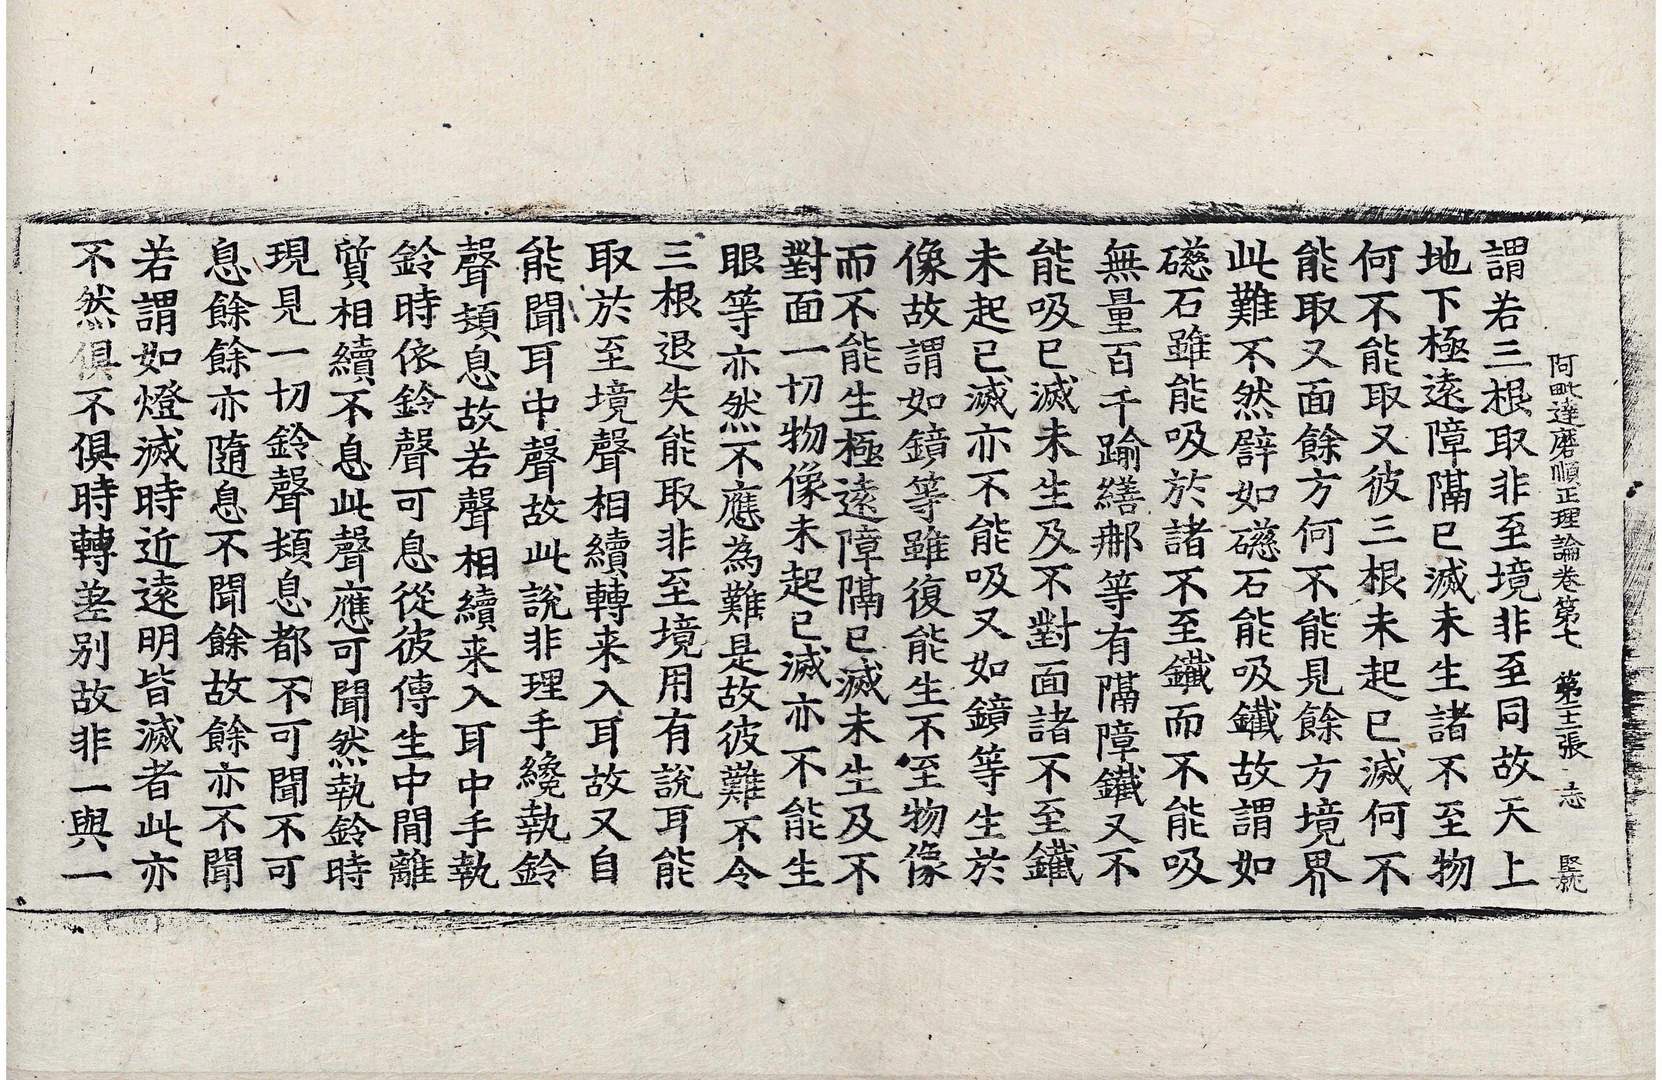 阿毗達磨順正理論卷第七 第 張 志
謂若三根取非至境非至同故天上
地下極遠障隔已滅未生諸不至物
何不能取又彼三根未起已滅何不
能取又面餘方何不能見餘方境界
此難不然譬如礠石能吸鐵故謂如
礠石雖能吸於諸不至鐵而不能吸
無量百千踰繕那等有隔障鐵又不
能吸已滅未生及不對面諸不至鐵
未起已滅亦不能吸又如鏡等生於
像故謂如鏡等雖復能生不至物像
而不能生極遠障隔已滅未生及不
對面一切物像未起已滅亦不能生
眼等亦然不應為難是故彼難不令
三根退失能取非至境用有說耳能
取於至境聲相續轉来入耳故又自
能聞耳中聲故此說非理手纔執鈴
聲頓息故若聲相續来入耳中手執
鈴時依鈴聲可息從彼傳生中閒離
質相續不息此聲應可聞然執鈴時
現見一切鈴聲頓息都不可聞不可
息餘餘亦隨息不聞餘故餘亦不聞
若謂如燈滅時近遠明皆滅者此亦
不然俱不俱時轉差別故非一與一